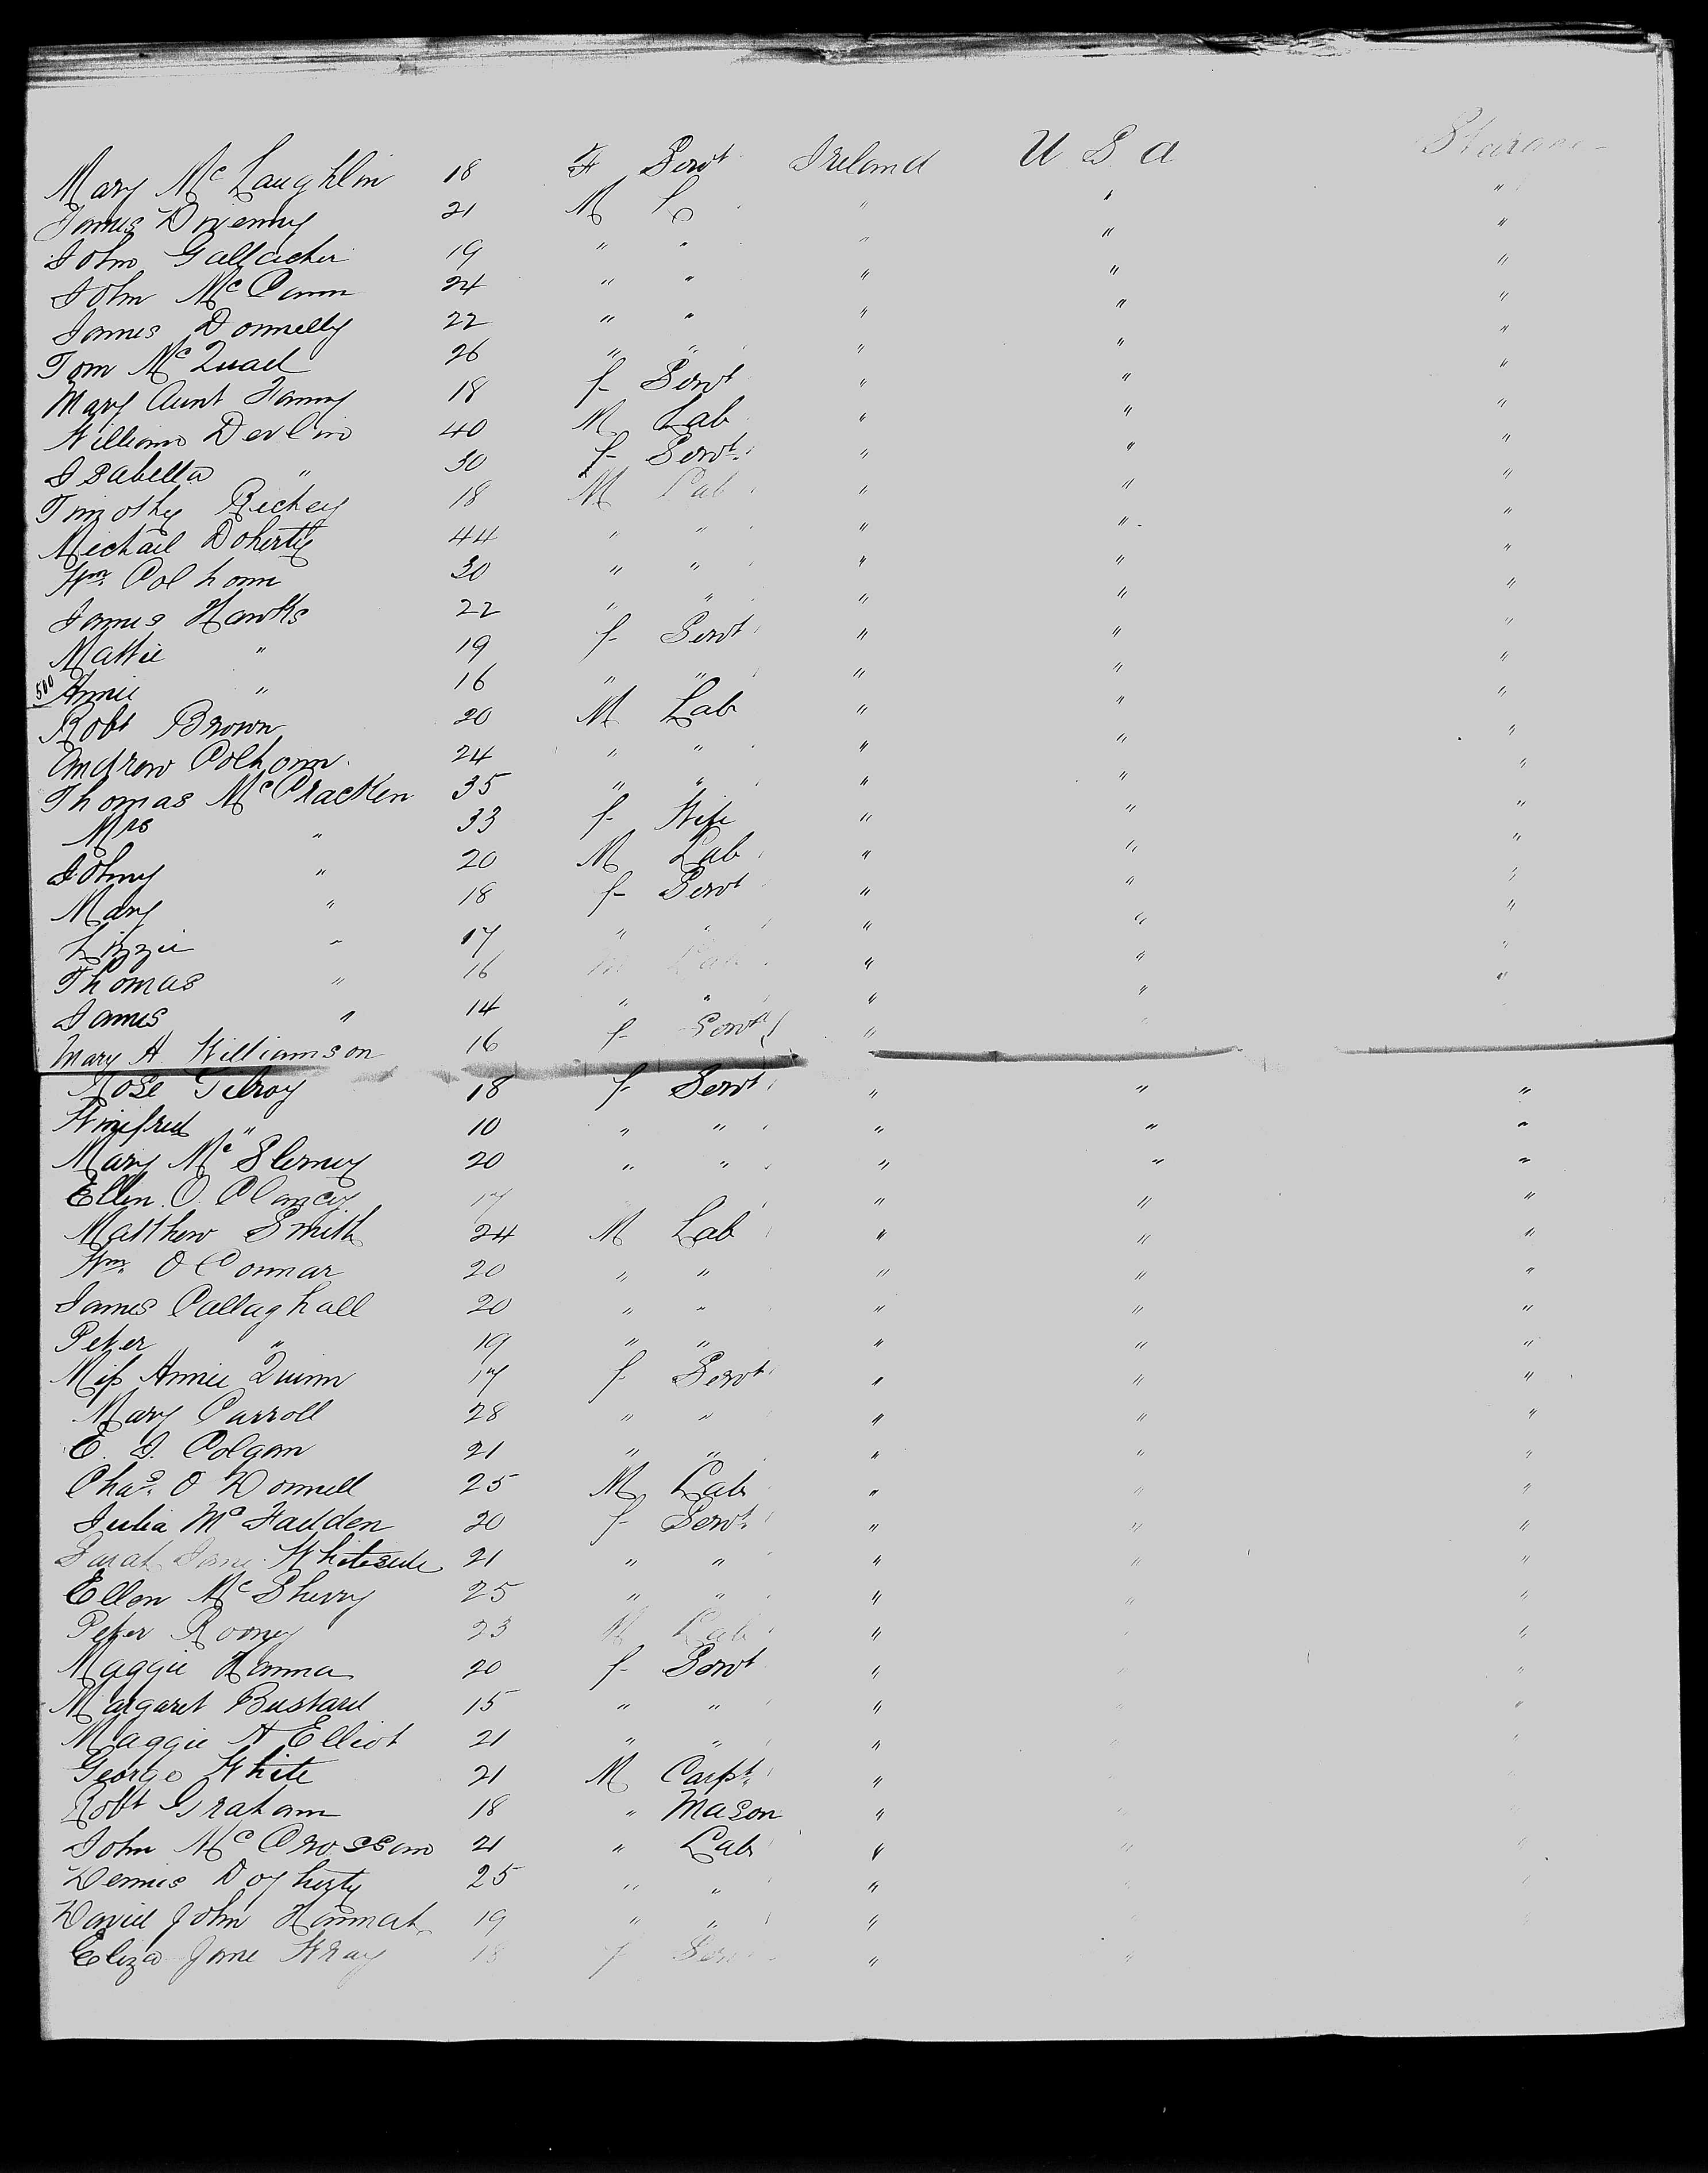 Mary McLaughlin 18 F Servt Ireland U S A Steerage
James Driening 21 M L " " "
John Gallacher 19 " " " " "
John McCann 24 " " " " "
James Donnelly 22 " " " " "
Tom McQuad 26 " " " " "
Mary Aunt Fanny 18 f Servt " " "
William Devlin 40 M Lab " " "
Isabella " 30 f Servt " " "
Timothy Richey 18 M Lab " " "
Michael Doherty 44 " " " " "
Wm Colhoun 30 " " " " "
James Hawks 22 " " " " "
Mattie " 19 f Servt " " "
500 Annie " 16 " " " " "
Robt Brown 20 M Lab " " "
Andrew Colhoun 24 " " " " "
Thomas McCracken 35 " " " " "
Mrs " 33 f Wife " " "
Johny " 20 M Lab " " "
Mary " 18 f Servt " " "
Lizzie " 17 " " " " "
Thomas " 16 M Lab " " "
James " 14 " " " " "
Mary A Williamson 16 f Servt "
Rose Gilroy 18 f Servt " " "
Winifred " 10 " " " " "
Mary Mc 20 " " " " "
Ellen O. Clancy 17 " " "
Matthew Smith 24 M Lab " " "
Wm O Connar 20 " " " " "
James Callaghall 20 " " " " "
Peter " 19 " " " " "
Miss Annie Quinn 17 f Servt " " "
Mary Carroll 28 " " " " "
E. J. Colgan 21 " " " " "
Chas. O Donnell 25 M Lab " " "
Julia McFadden 20 f Servt " " "
Sarah Jane Whiteside 21 " " " " "
Ellen McSherry 25 " " " " "
Peter Rooney 23 M Lab " " "
Maggie Hanna 20 f Servt " " "
Margaret Bustard 15 " " " " "
Maggie A Elliot 21 " " " " "
George White 21 M Carpt "
Robt Graham 18 " Mason "
John McCrossan 21 " Lab " " "
Dennis Dogherty 25 " " " " "
David John Hannah 19 " " "
Eliza Jane Wray 18 f Serv " "